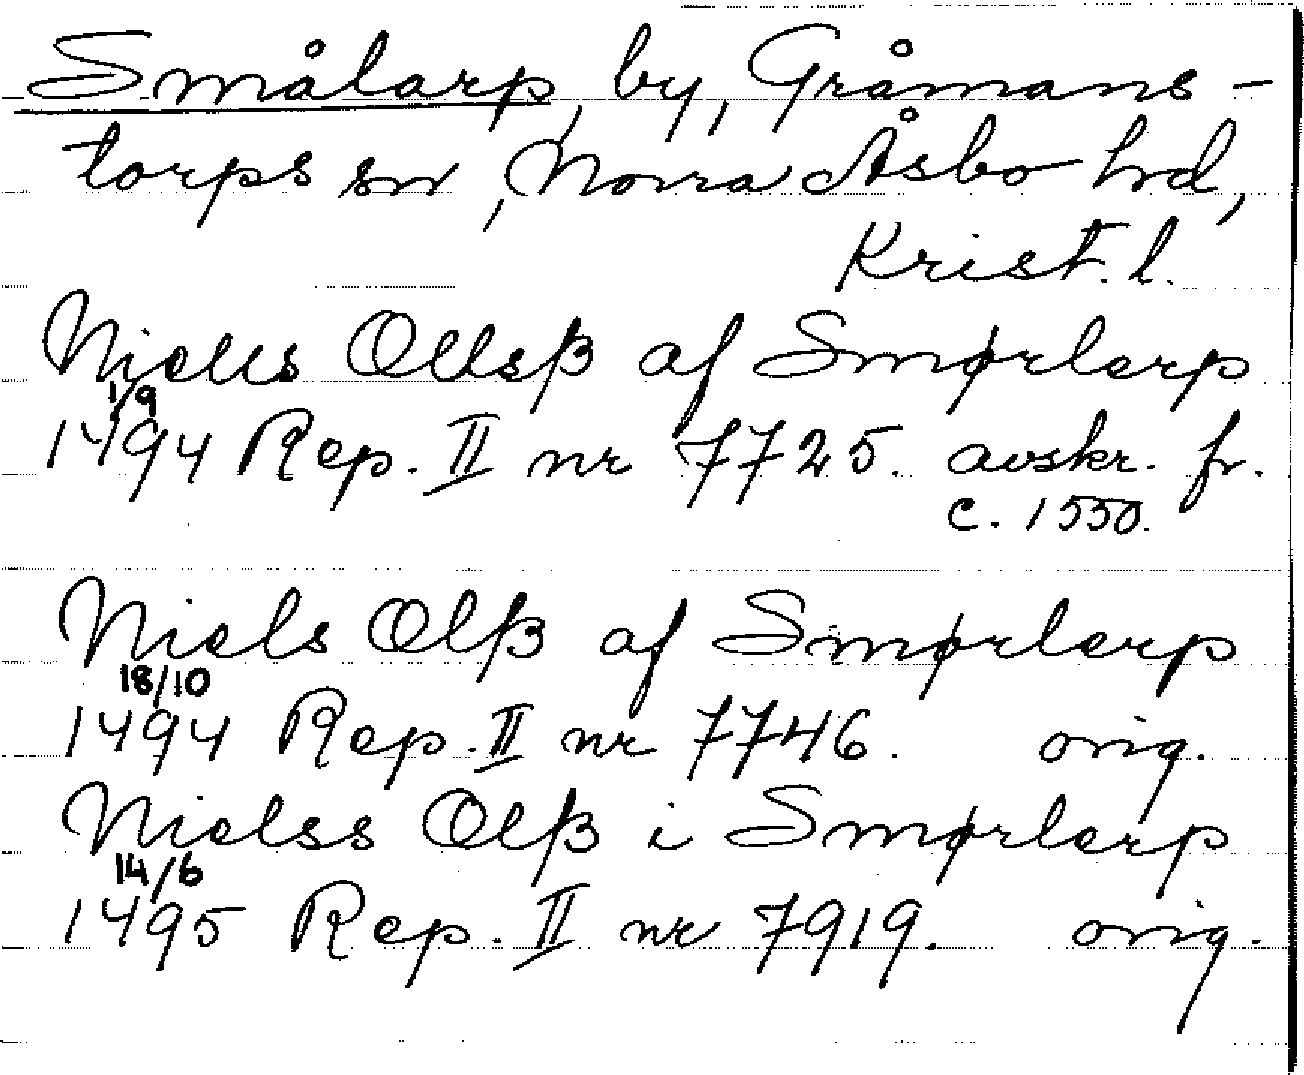 Smålarp, by, Gråmans-
torps sn, Norra Åsbo hrd,
Krist. l.
Niells Ollsß af Smørlerp
1/9
1494 Rep. II nr 7725. avskr. fr.
c. 1550.
Niels Olß af Smørlerp
18/10
1494 Rep. II nr 7746. orig.
Nielss Olß i Smørlerp
14/6
1495 Rep. II nr 7919. orig.